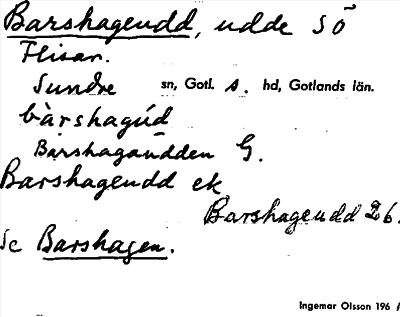 Barshageudd, udde SÖ
Flisar.
Sundre sn, Gotl. S. hd, Gotlands län.
bàrshagúd
Barshagaudden G.
Barshageudd ek
Barshageudd 26.
Se Barshagen.
Ingemar Olsson 196